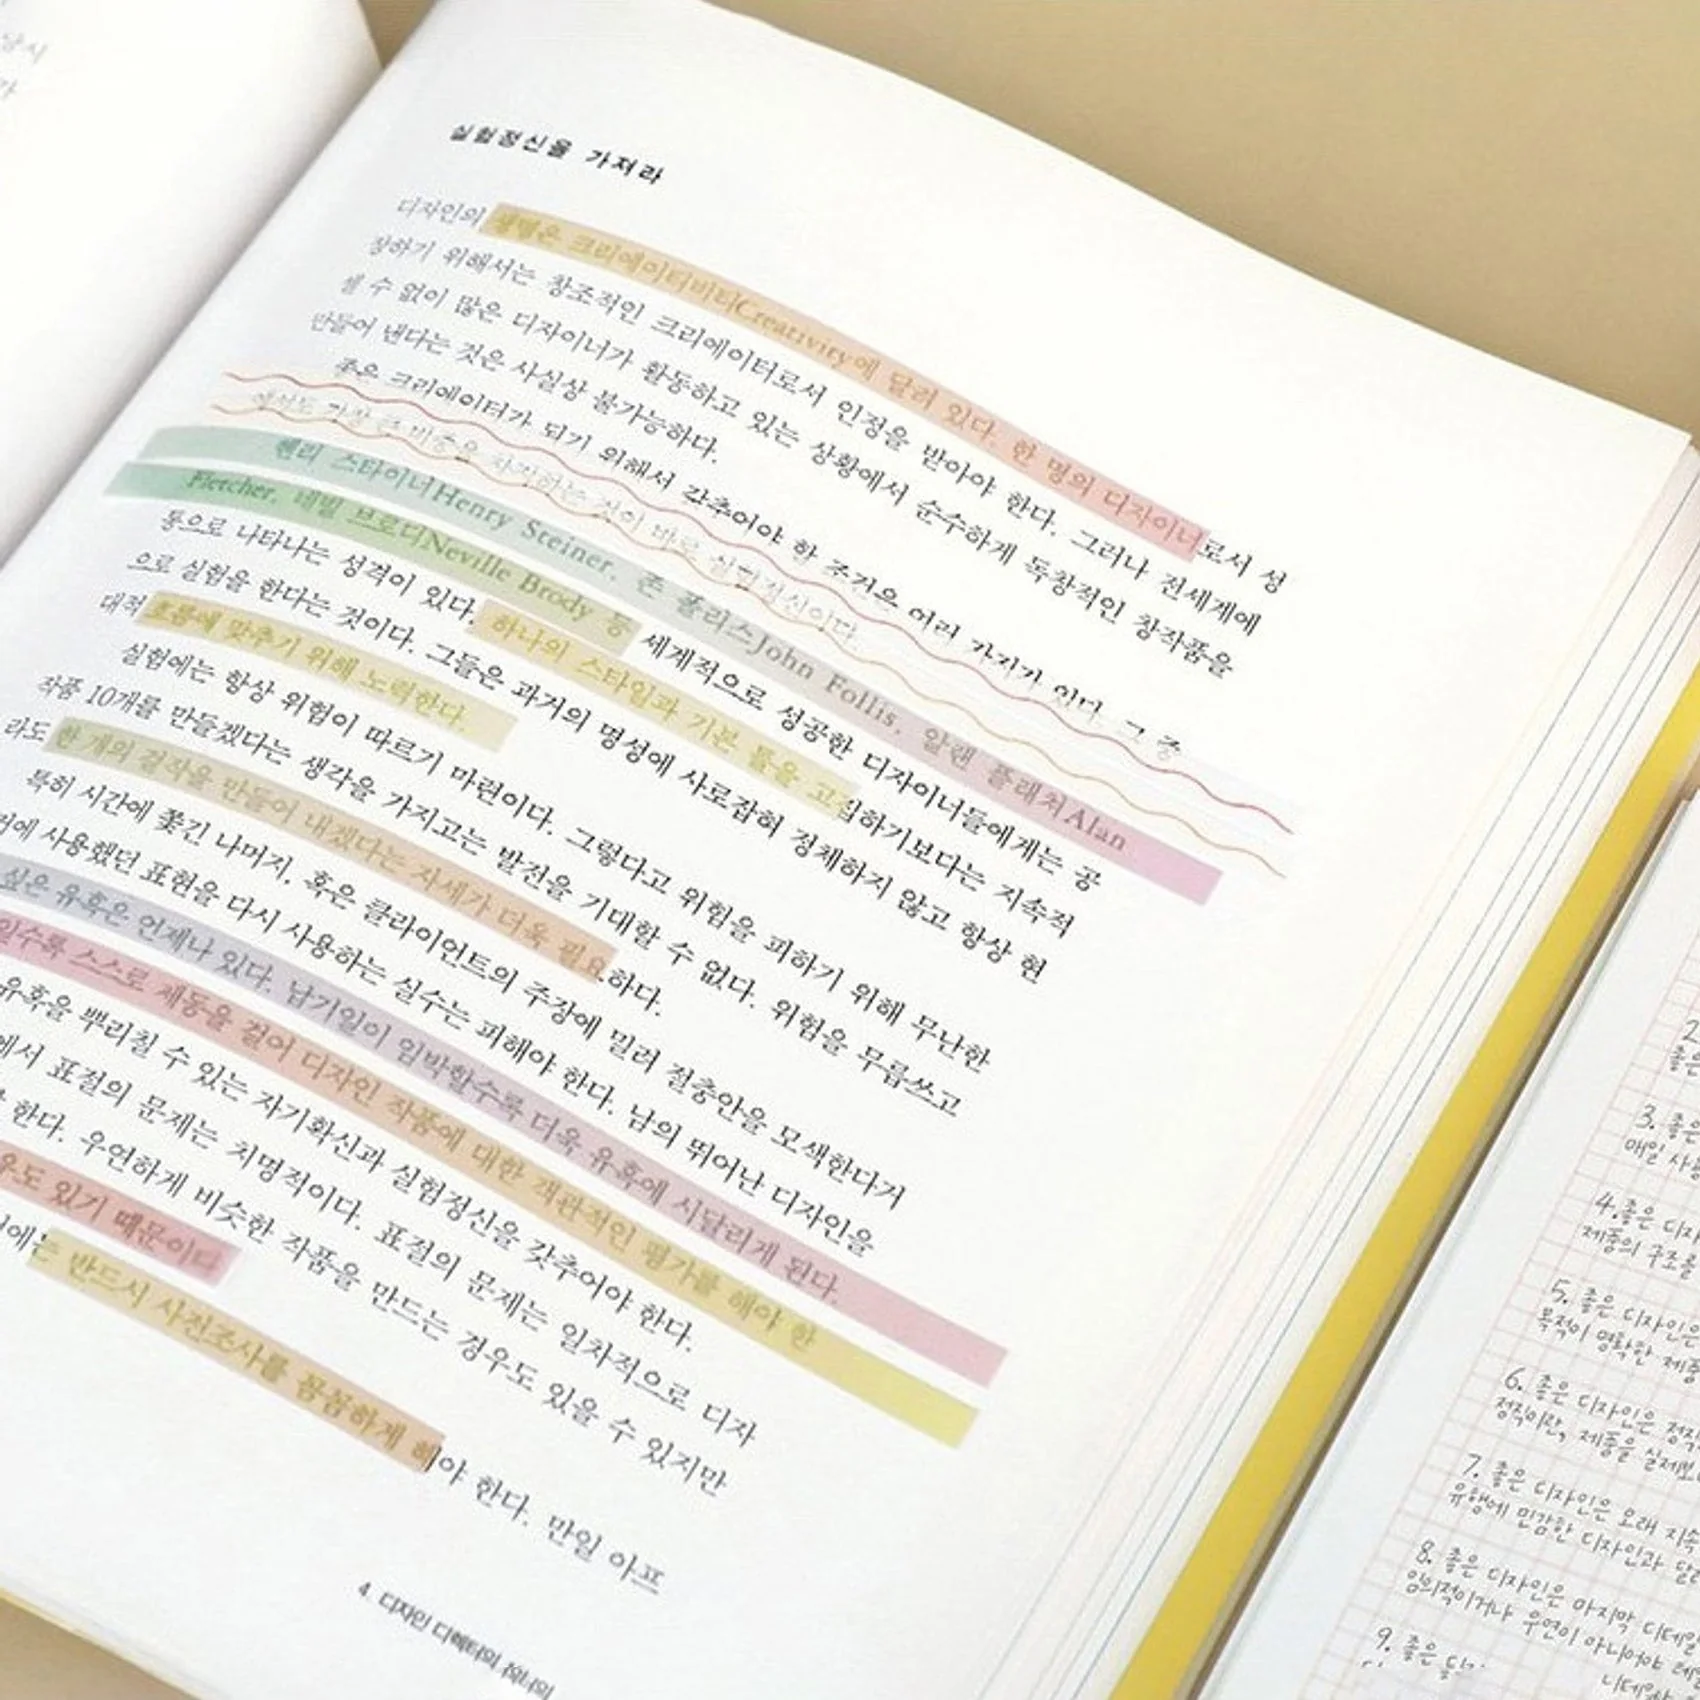 실험정신을 가져라
디자인의 생명은 크리에이티비티Creativity에 달려 있다. 한 명의 디자이너로서 성
장하기 위해서는 창조적인 크리에이터로서 인정을 받아야 한다. 그러나 전세계에
셀 수 없이 많은 디자이너가 활동하고 있는 상황에서 순수하게 독창적인 창작품을
만들어 낸다는 것은 사실상 불가능하다.
좋은 크리에이터가 되기 위해서 갖추어야 할 조건은 여러 가지가 있다. 그 중
에서도 가장 큰 비중을 차지하는 것이 바로 실험정신이다.
헨리 스타이너Henry Steiner, 존 폴리스John Follis, 알랜 플래처Alan
Fletcher, 네빌 브로디Neville Brody 등 세계적으로 성공한 디자이너들에게는 공
통으로 나타나는 성격이 있다. 하나의 스타일과 기본 틀을 고집하기보다는 지속적
으로 실험을 한다는 것이다. 그들은 과거의 명성에 사로잡혀 정체하지 않고 항상 현
대적 흐름에 맞추기 위해 노력한다.
실험에는 항상 위험이 따르기 마련이다. 그렇다고 위험을 피하기 위해 무난한
작품 10개를 만들겠다는 생각을 가지고는 발전을 기대할 수 없다. 위험을 무릅쓰고
라도 한 개의 걸작을 만들어 내겠다는 자세가 더욱 필요하다.
특히 시간에 쫓긴 나머지, 혹은 클라이언트의 주장에 밀려 절충안을 모색한다거
에 사용했던 표현을 다시 사용하는 실수는 피해야 한다. 남의 뛰어난 디자인을
싶은 유혹은 언제나 있다. 납기일이 임박할수록 더욱 유혹에 시달리게 된다.
일수록 스스로 제동을 걸어 디자인 작품에 대한 객관적인 평가를 해야 한
유혹을 뿌리칠 수 있는 자기확신과 실험정신을 갖추어야 한다.
에서 표절의 문제는 치명적이다. 표절의 문제는 일차적으로 디자
한다. 우연하게 비슷한 작품을 만드는 경우도 있을 수 있지만
우도 있기 때문이다
에는 반드시 사전조사를 꼼꼼하게 해야 한다. 만일 아프
4. 디자인 디렉터의
2
좋은
3. 좋은
매일 사용
4. 좋은 디자
제품의 구조를
5. 좋은 디자인은
목적이 명확한 제품
6. 좋은 디자인은 정직
정직이란, 제품을 실제보다
7. 좋은 디자인은 오래 지속
유행에 민감한 디자인과 달리
8. 좋은 디자인은 마지막 디테일
임의적이거나 우연이 아니어야
9. 좋은